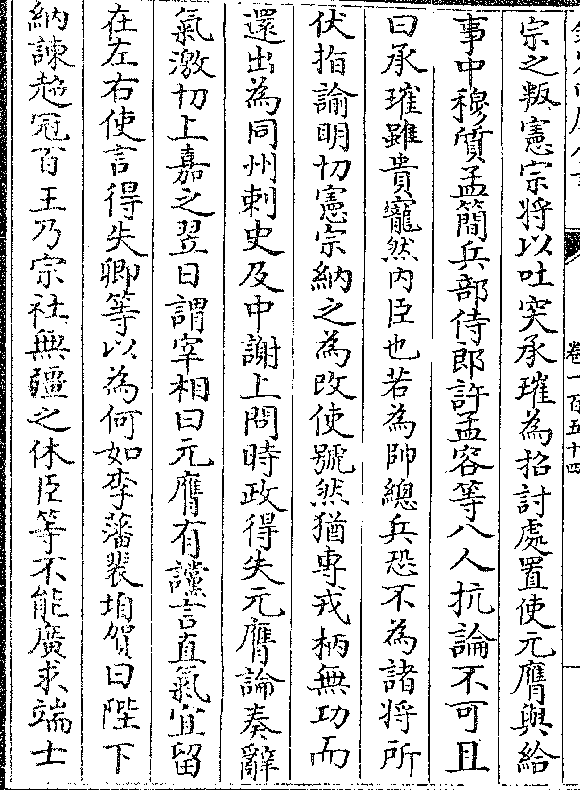 宗之叛憲宗將以吐突承璀為招討處置使元膺與給
事中穆質孟簡兵部侍郎許孟容等八人抗論不可且
曰承璀雖貴寵然内臣也若為帥總兵恐不為諸將所
伏指諭明切憲宗納之為改使號然猶專戎柄無功而
還出為同州刺史及中謝上問時政得失元膺論奏辭
氣激切上嘉之翌日謂宰相曰元膺有讜言直氣宜留
在左右使言得失卿等以為何如李藩裴垍賀曰陛下
納諫超冠百王乃宗社無疆之休臣等不能廣求端士
卷一百五十四